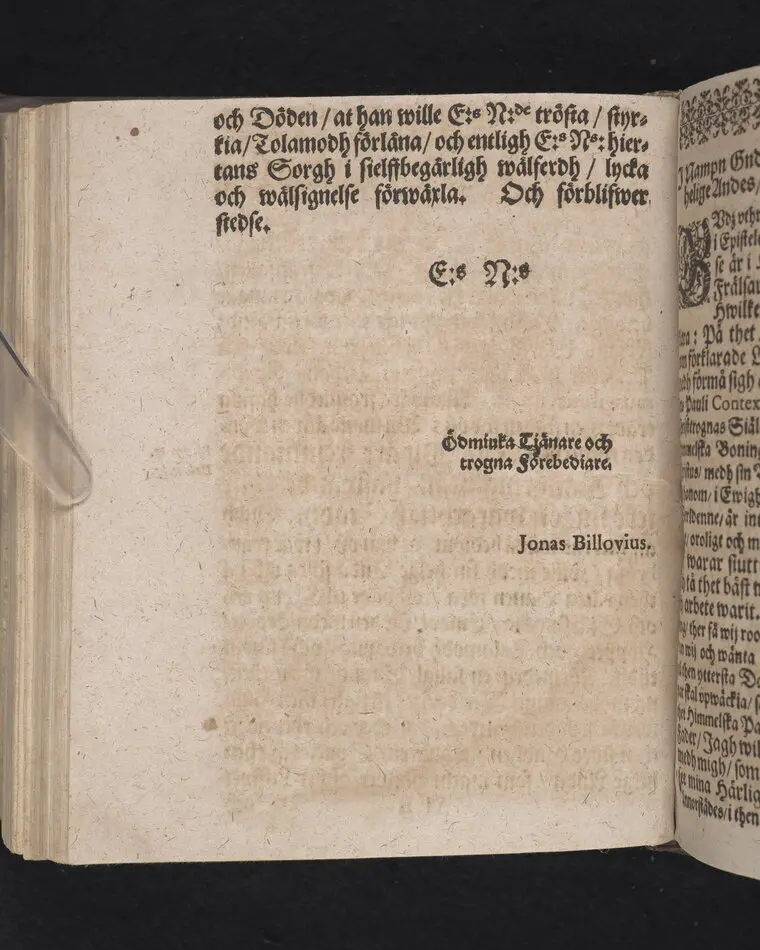 och Döden / at han wille E:s N:de trösta / styr-
kia / Tolamodh förläna / och entligh E:s N:s: hier-
tans Sorgh i sielffbegärligh wälferdh / lycka
och wälsignelse förwäxla. Och förblifwer
stedse.
E:s N:s
Ödmiuka Tjänare och
trogna Förebediare.
Jonas Billovius.
Nampn Gud
helige Andes /
i Epistel
se är i
Frälsar
Hwilke
: På thet
förklarade
förmå sigh
Pauli Contex
trognas Siäl
Boning
medh sin
i Ewigh
är in
oroligt och m
warar stutt
tå thet bäst
arbete warit.
ther få wij roo
wij och wänta
then yttersta Da
skal opwäckia / s
Himmelska Pa
Jagh wil
medh migh / som
mina Härlig
i then